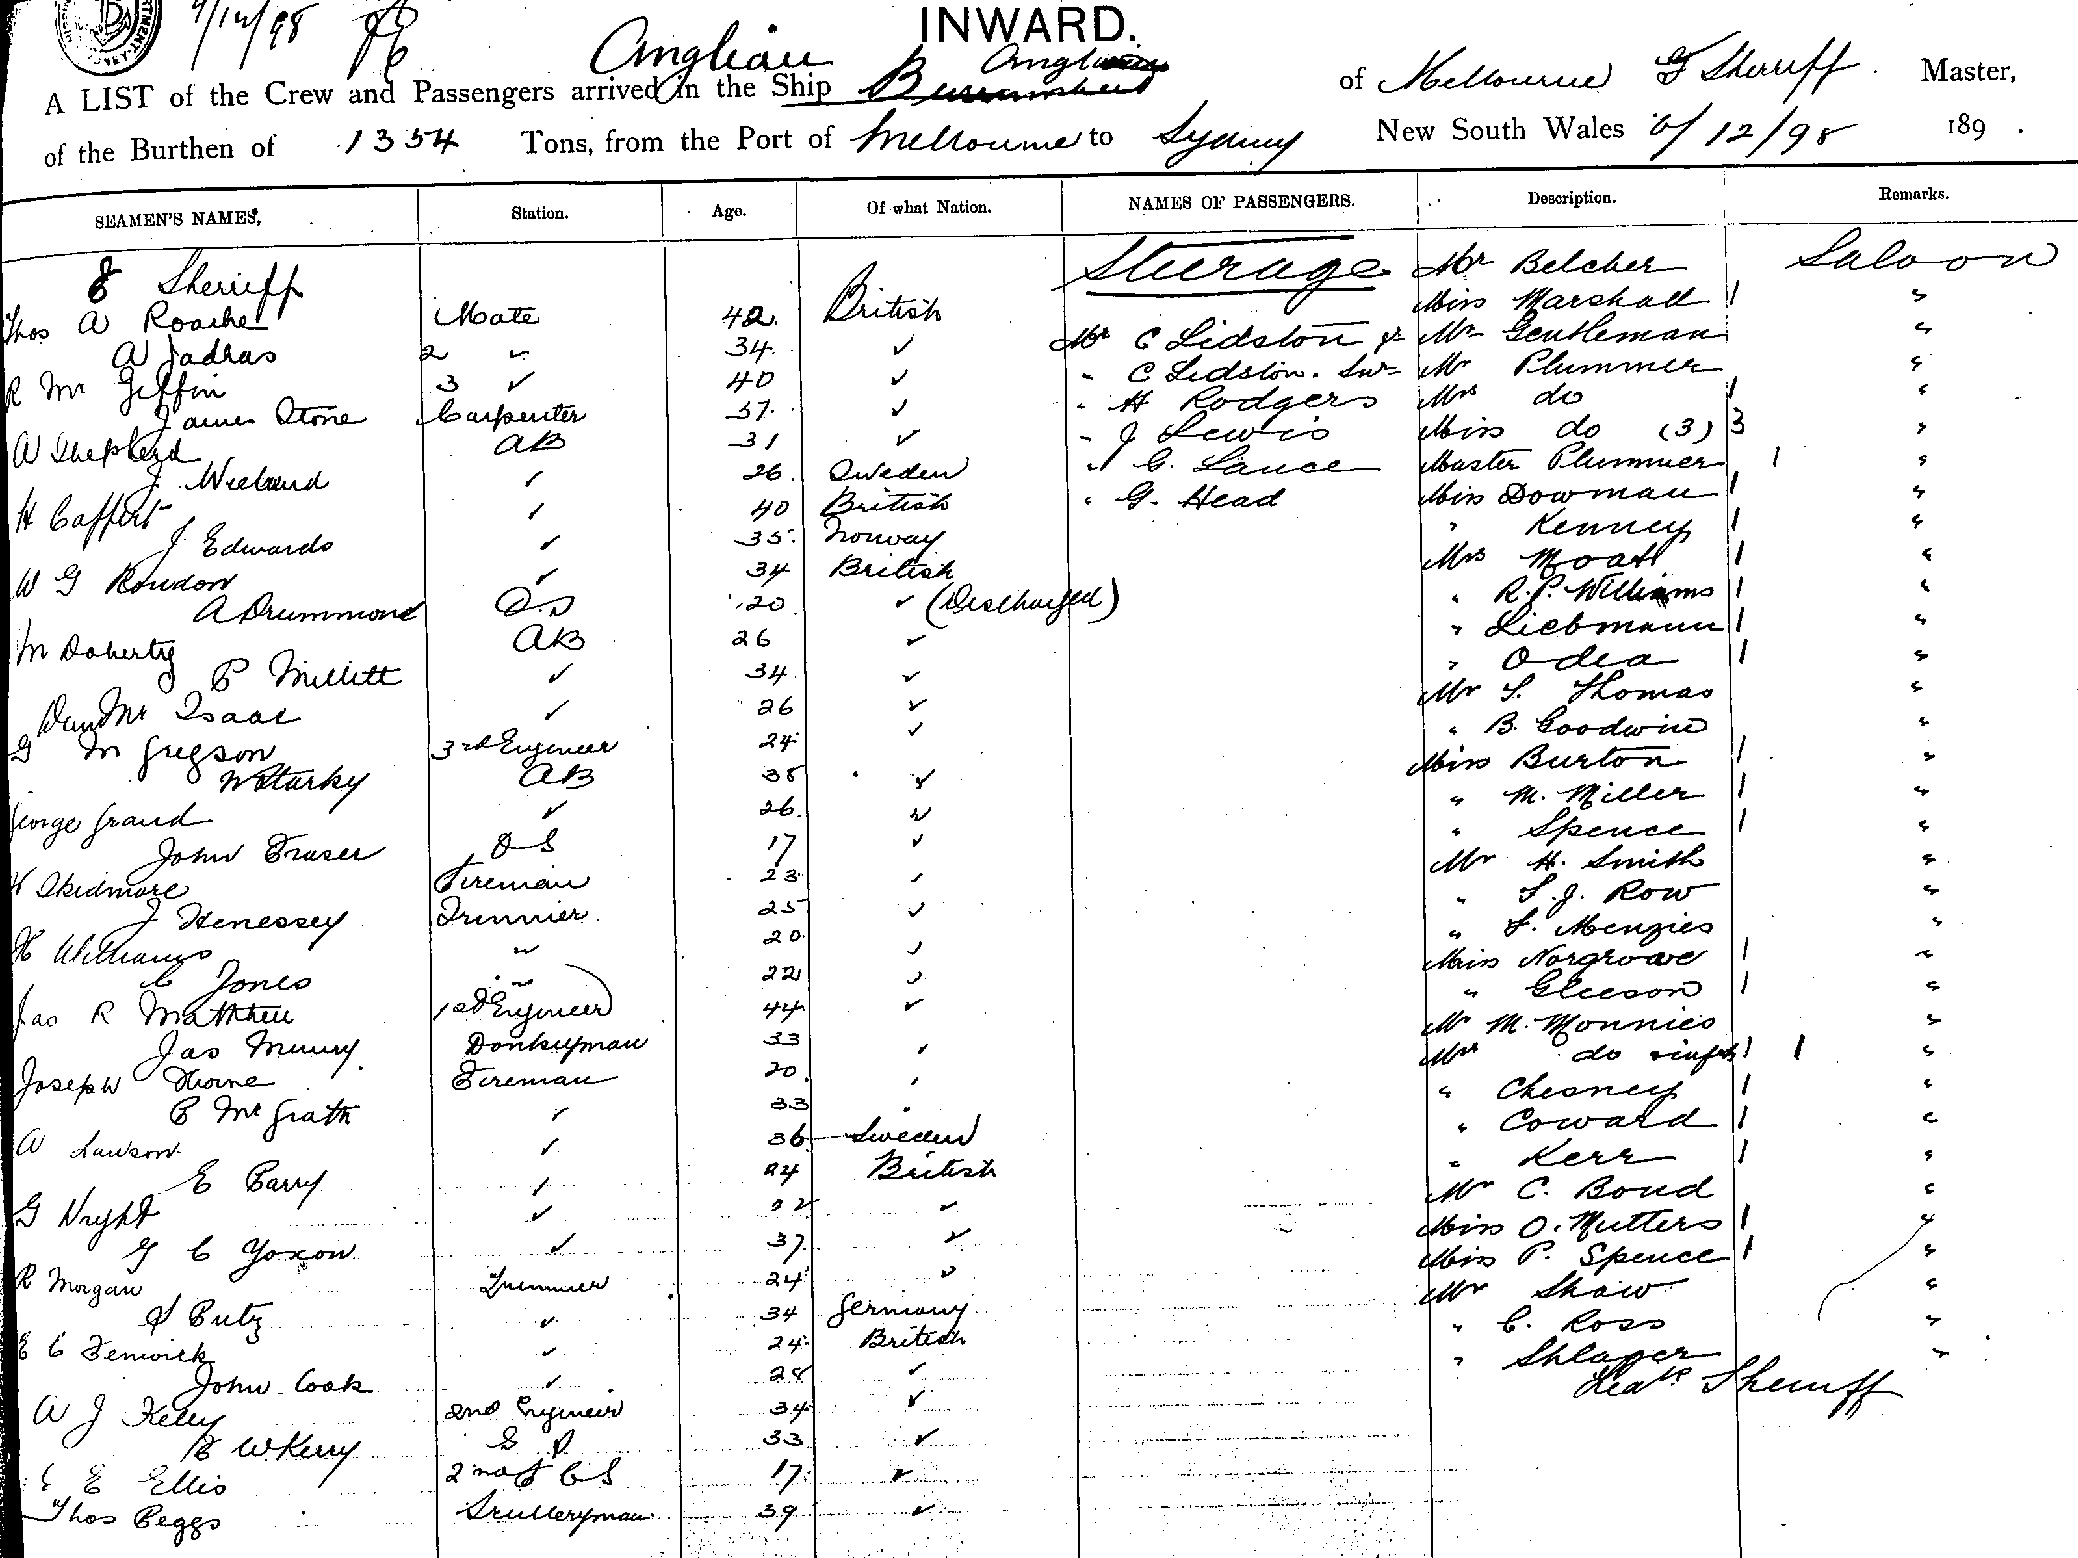 9/12/98
INWARD.
Anglian
A LIST of the Crew and Passengers arrived in the Ship of Melbourne F Sherriff Master,
of the Burthen of 1354 Tons, from the Port of Melbourne to Sydney New South Wales 6/12/98 189 .
SEAMEN'S NAMES, Station. Age. Of what Nation. NAMES OF PASSENGERS. Description. Remarks.
Sherriff Steerage Mr Belcher Saloon
Thos A Roache Mate 42 British Miss Marshall 1 "
A Jadras 2 " 34 ✓ Mr C Lidston & Mr Gentleman "
R Mc Giffin 3 ✓ 40 ✓ " C Lidston. Mr Plummer "
James Stone Carpenter 57 ✓ " H Rodgers Mrs do 1 "
A Shepherd AB 31 ✓ " J Lewis Miss do (3) 3 "
J Wieland ✓ 26 Sweden " G. Lance Master Plummer 1 "
H Caffert ✓ 40 British " G. Head Miss Dowman 1 "
J Edwards ✓ 35 Norway " Kenney 1 "
W G Roudon ✓ 34 British Mrs Moat 1 "
A Drummond O.S 20 ✓ (Discharged) " R. P. Williams 1 "
M Doherty AB 26 ✓ " Liebmann 1 "
P Millitt ✓ 34 ✓ " Odea 1 "
Mc Isaac ✓ 26 ✓ Mr S. Thomas "
G M Gregson 3rd Engineer 24 ✓ " B. Goodwin "
W Starky AB 38 ✓ Miss Burton 1 "
George Grand ✓ 26 ✓ " M. Miller 1 "
John Fraser O S 17 ✓ " Spence 1 "
H Skidmore Fireman 23 ✓ Mr H. Smith "
J Henessey Trimmer 25 ✓ " S. J. Row "
H Williams " 20 ✓ " S. Menzies "
C Jones " 22 ✓ Miss Norgrove 1 "
Jas R Matthew 1st Engineer 44 ✓ " Gleeson 1 "
Jas Donkeyman 33 ✓ Mr M. Monnies "
Joseph Fireman 20 ✓ Mrs do 1 1 "
P McGrath ✓ 33 " Chesney 1 "
A Lawson ✓ 36 Sweden " Coward 1 "
E Barry ✓ 24 British " Kerr 1 "
G Wright ✓ ✓ Mr C. Bond "
G C Yoxon ✓ 37 ✓ Miss O. Mutters 1 "
R Morgan Trimmer 24 ✓ Miss P. Spence 1 "
Putz ✓ 34 Germany Mr Shaw "
E C Fenwick ✓ 24 British " C. Ross "
John Cook ✓ 28 ✓ " Shlager "
Sherriff
A J Kelly 2nd Engineer 34 ✓
W Kerry 33 ✓
E Ellis 2nd 17 ✓
Thos Peggs Sculleryman 39 ✓